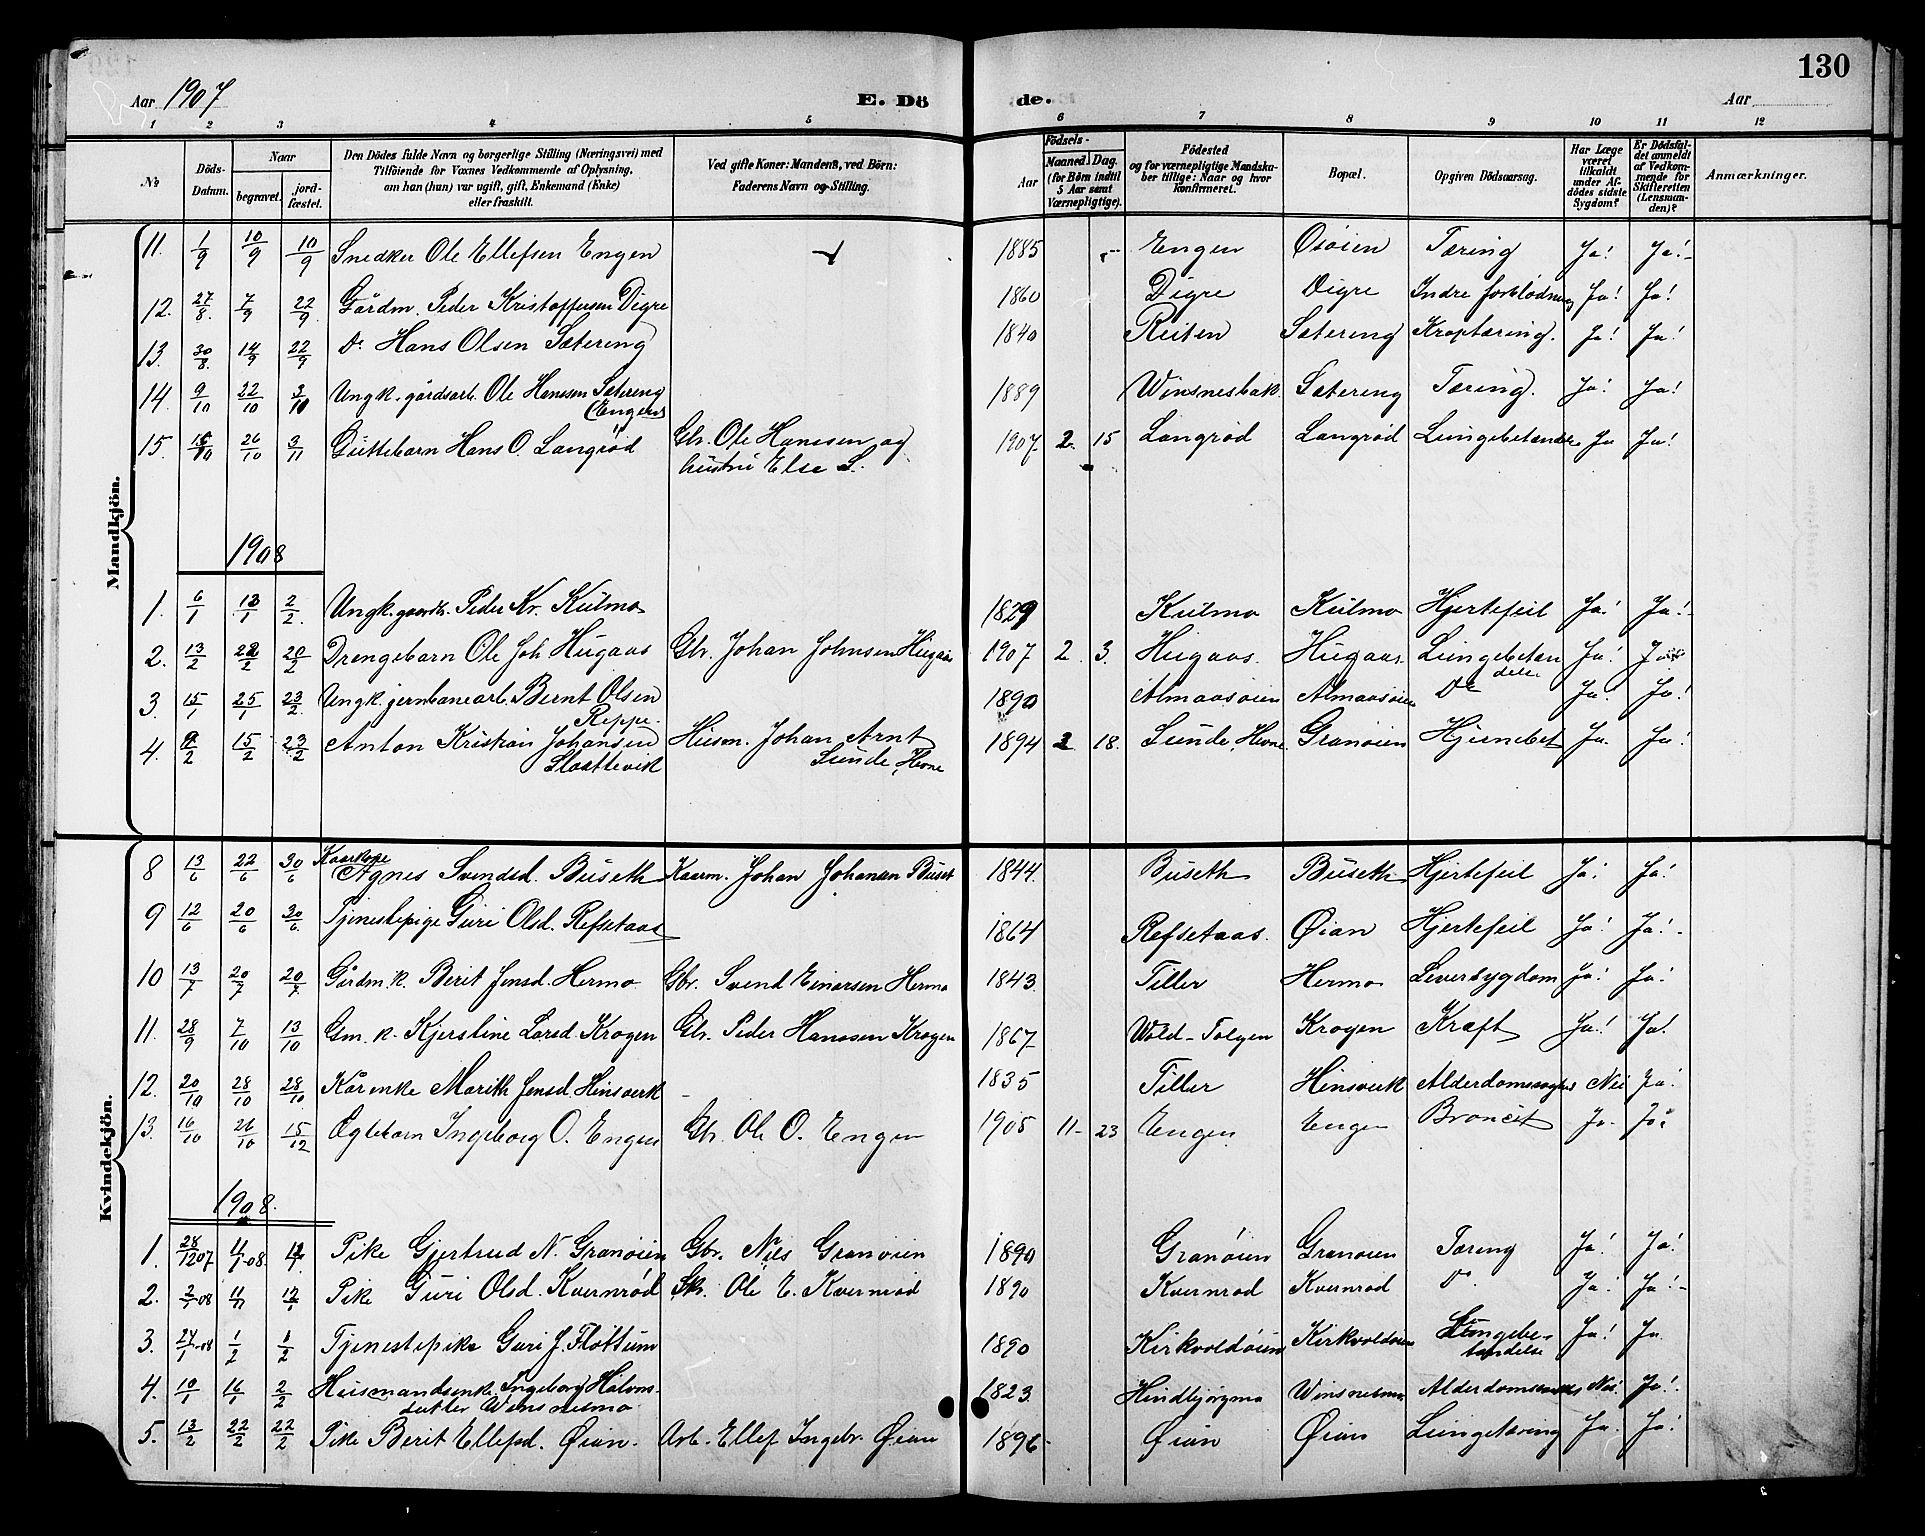 130
Aar 1907
E. Dö
de.
Aar
1 2 3 4 5 6 7 8 9 10 11 12
No
Döds-Datum.
Naar
begravet.
jord-fæstet.
Den Dödes fulde Navn og borgerlige Stilling (Næringsvei) med
Tilföiende for Voxnes Vedkommende af Oplysning,
om han (hun) var ugift, gift, Enkemand (Enke)
eller fraskilt.
Ved gifte Koner: Mandens, ved Börn:
Faderens Navn og Stilling.
Födsels-
Aar
Maaned. Dag.
(for Börn indtil
5 Aar samt
Værnepligtige).
Födested
og for værnepligtige Mandska-
ber tillige: Naar og hvor
konfirmeret.
Bopæl.
Opgiven Dödsaarsag.
Har Læge
været
tilkaldt
under Af-
dödes sidste
Sygdom?
Er Dödsfal-
det anmeldt
af Vedkom-
mende for
Skifteretten
(Lensman-
den)?
Anmærkninger.
Mandkjön.
11. 1/9 10/9 10/9 Snedker Ole Ellefsen Engen 1885 Engen Osöien Tæring Ja! Ja!
12. 27/8 7/9 22/9 Gårdm. Peder Kristoffersen Digre 1860 Digre Digre Indre forblødning Ja! Ja!
13. 30/8 14/9 22/9 Do Hans Olsen Sætering 1840 Reiten Sætering Kroptæring. Ja! Ja!
14. 9/10 22/10 3/10 Ungk. gårdsarb. Ole Hanssen Sætering 1889 Winsnesbak. Sætering Tæring. Ja! Ja!
(Engen)
15. 15/10 26/10 3/11 Guttebarn Hans O. Langrød Gbr. Ole Hanssen og 1907 2. 15 Langrød Langrød Lungebetændelse Ja Ja!
hustru Else S.
1908
1. 6/1 13/1 2/2 Ungk. gaardbr. Peder Kr. Kulmo 1829 Kulmo Kulmo Hjertefeil Ja! Ja!
2. 13/2 22/2 20/2 Drengebarn Ole Joh Hugaas Gbr. Johan Johnsen Hugaas 1907 2 3. Hugaas. Hugaas. Lungebetæn Ja! Ja
delse
3. 15/1 25/1 23/2 Ungk. jernbanearb. Bernt Olsen 1890 Almaasöien Almaasöien Do Ja. Ja!
Reppe.
4. 9/2 15/2 23/2 Anton Kristian Johansen Husm. Johan Arnt 1894 2 18. Sunde, Hevne Granöien Hjernebet Ja. Ja!
Slættevik Sunde, Hevne
Kvindekjön.
8 13/6 22/6 30/6 Kaarkone
Agnes Svendsd. Buseth Kaarm. Johan Johansen Buset 1844 Buseth Buseth Hjertefeil Ja! Ja!
9 12/6 20/6 30/6 Tjenestepige Guri Olsd. Refsetaas 1864 Refsetaas. Øian Hjertefeil Ja! Ja!
10 13/7 20/7 20/7 Gårdm. k Berit Jensd. Hermo Gbr. Svend Einarsen Hermo 1843 Tiller Hermo Leversygdom Ja! Ja!
11. 28/9 7/10 13/10 Gm. k. Kjerstine Larsd. Krogen Gbr. Peder Hanssen Krogen 1867 Wold-Tolgen Krogen Kræft Ja! Ja!
12. 20/10 28/10 28/10 Kårenke Marith Jensd. Hinsverk 1835 Tiller Hinsverk Nei Ja!
13. 16/10 26/10 15/12 Ingeborg O. Engen Gbr. Ole O. Engen 1905 11- 23 Engen Engen Broncit Ja. Ja!
1908.
1. 28/12 07 11/1-08. Pike Gjertrud N. Granöien Gbr. Nils Granöien 1890 Granöien Granöien Tæring Ja! Ja!
2. 2/1-08 11/1 12/1 Pike Guri Olsd. Kvernrød Ole E. Kvernrød 1890 Kvernrød Kvernrød Do. Ja! Ja!
3. 24/1-08 1/2 1/2 Tjenestepike Guri J. Flöttum 1890 Kirkvoldöien Kirkvoldöien Lungebe- Ja! Ja.
tændelse
4. 10/1 16/1 2/2 Husmandsenke Ingeborg Halvors- 1823 Hindbjörgmo Winsnesmo Nei. Ja!
datter Winsnesmo
5. 13/2 22/2 22/2 Pike Berit Ellefsd. Øian. Arb. Ellef Ingebr. Øian 1896 Øian Øian Lungetæring Ja. Ja!